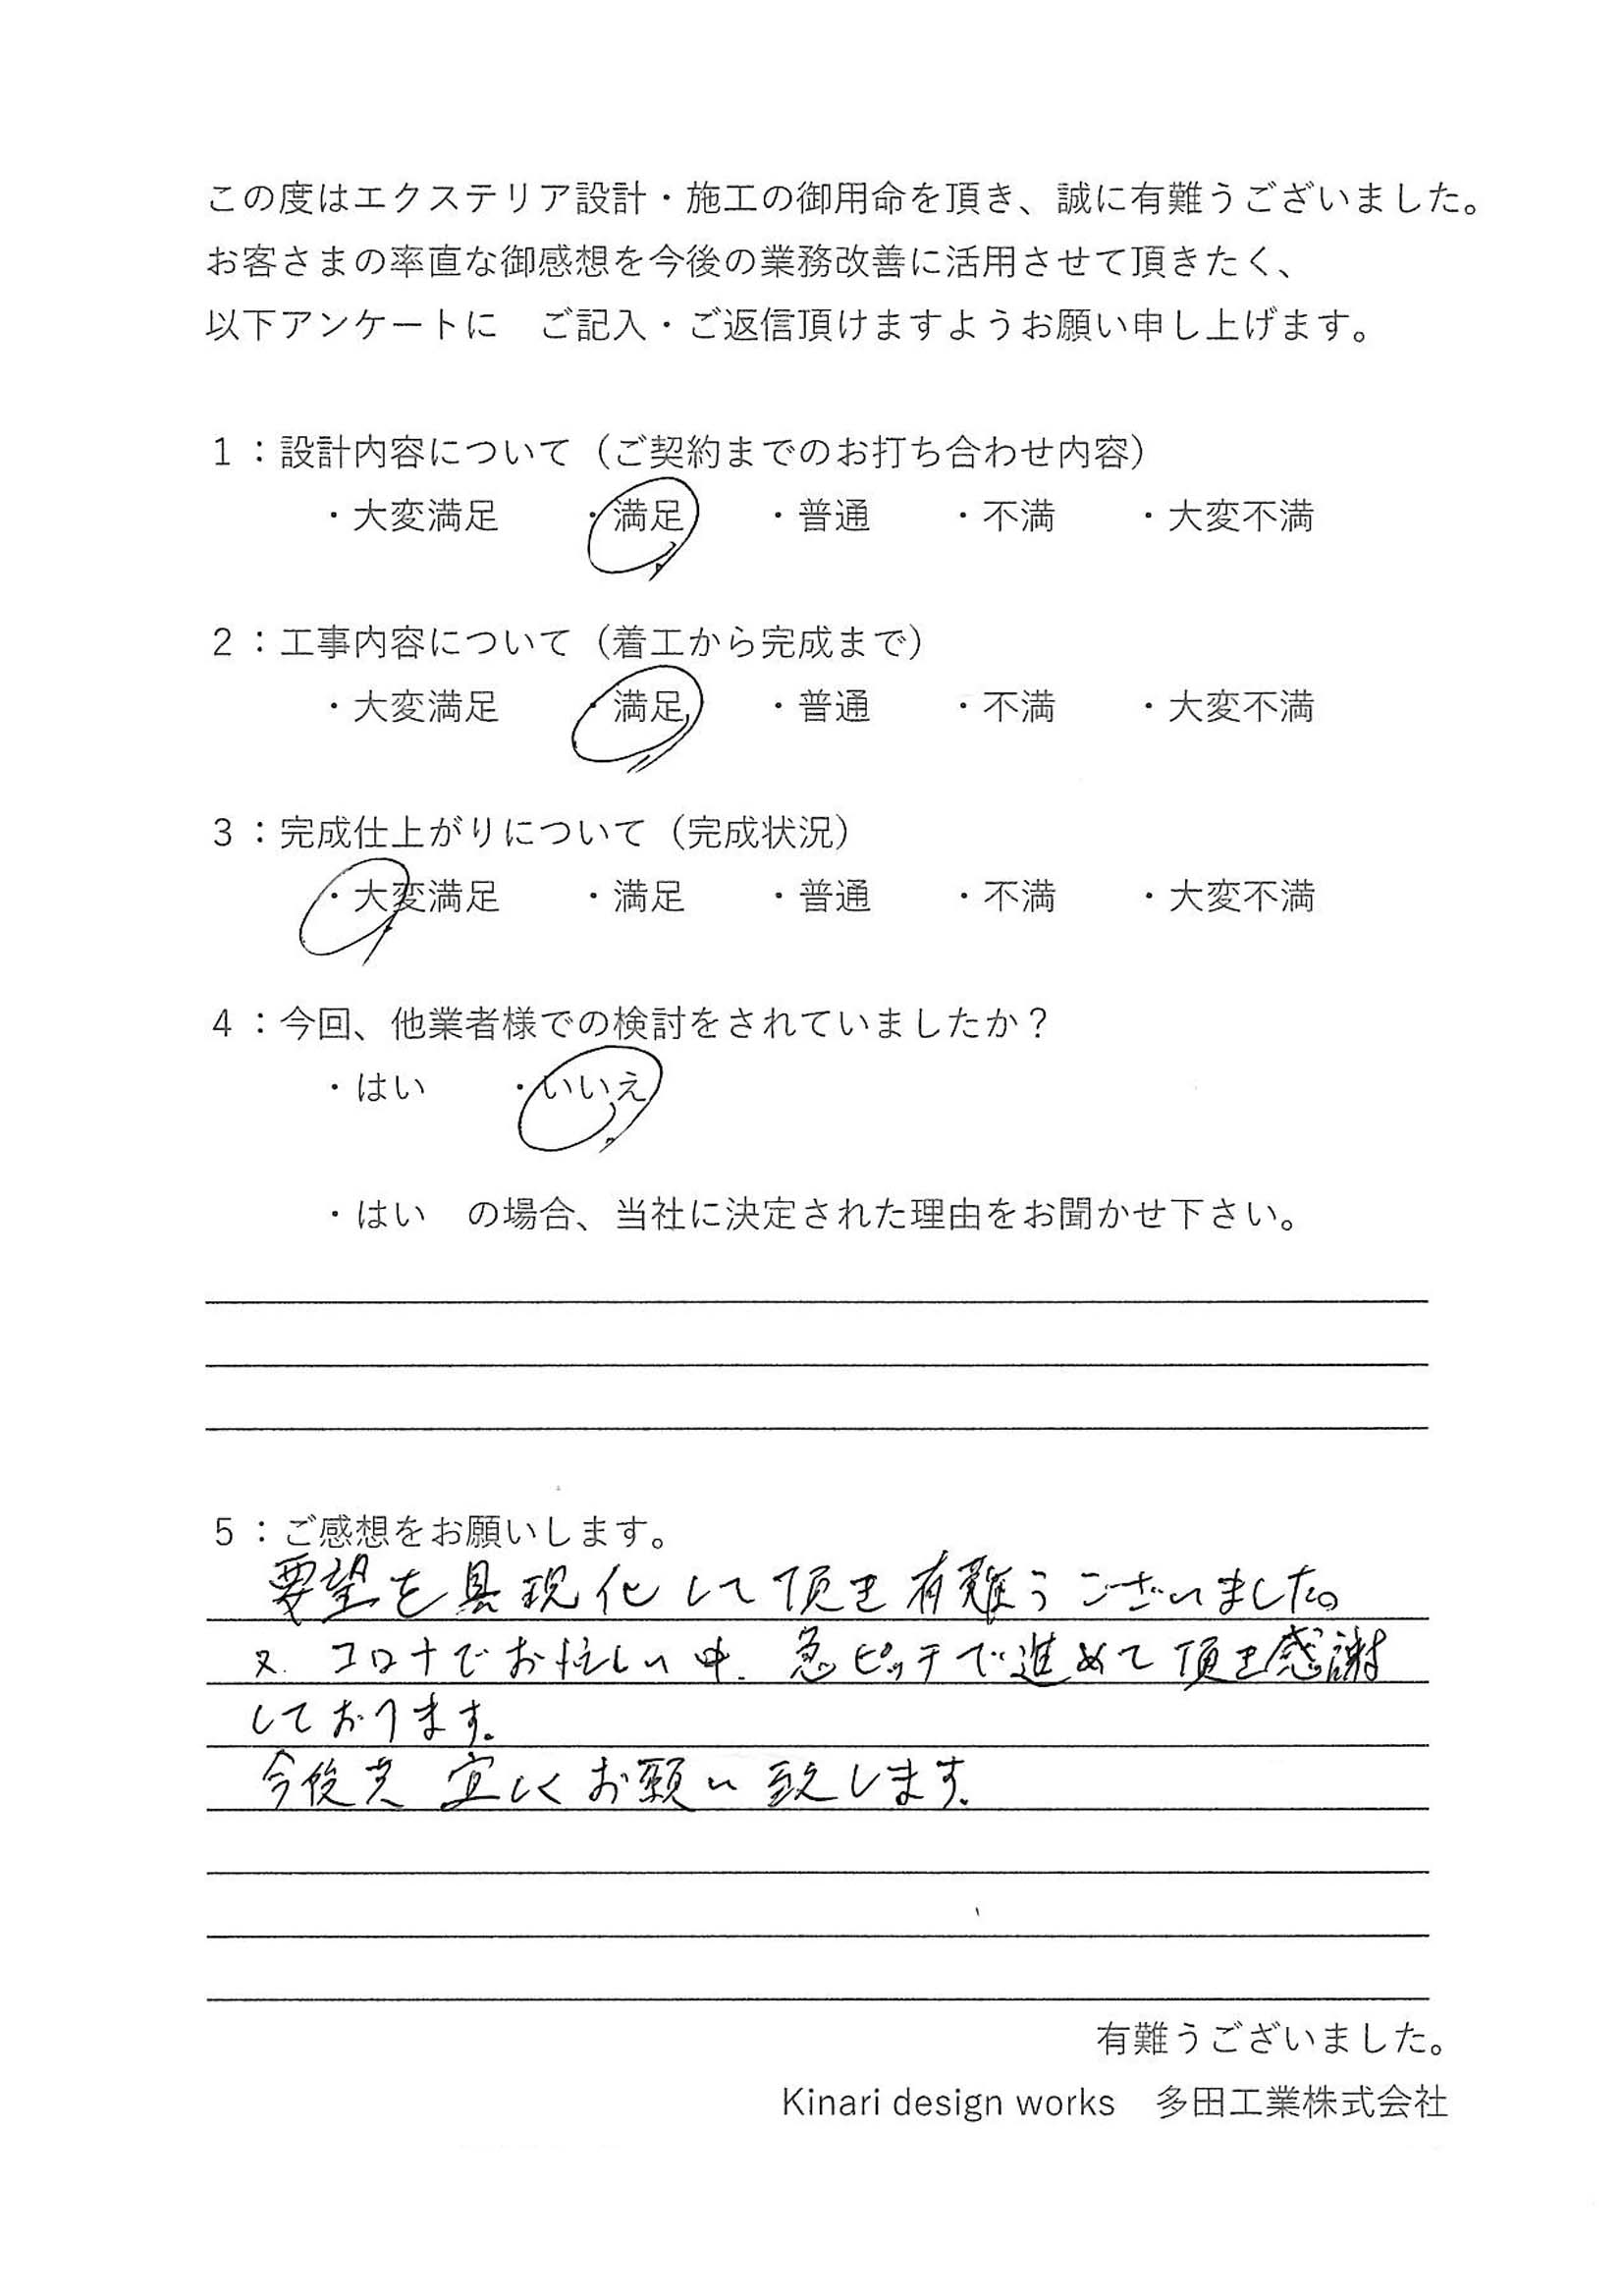 この度はエクステリア設計・施工の御用命を頂き、誠に有難うございました。
お客さまの率直な御感想を今後の業務改善に活用させて頂きたく、
以下アンケートに　ご記入・ご返信頂けますようお願い申し上げます。
１：設計内容について（ご契約までのお打ち合わせ内容）
・大変満足　・満足　・普通　・不満　・大変不満
２：工事内容について（着工から完成まで）
・大変満足　・満足　・普通　・不満　・大変不満
３：完成仕上がりについて（完成状況）
・大変満足　・満足　・普通　・不満　・大変不満
４：今回、他業者様での検討をされていましたか？
・はい　・いいえ
・はい　の場合、当社に決定された理由をお聞かせ下さい。
５：ご感想をお願いします。
要望を具現化して頂き有難うございました。
又、コロナでお忙しい中、急ピッチで進めて頂き感謝
しております。
今後共 宜しくお願い致します。
有難うございました。
Kinari design works　多田工業株式会社